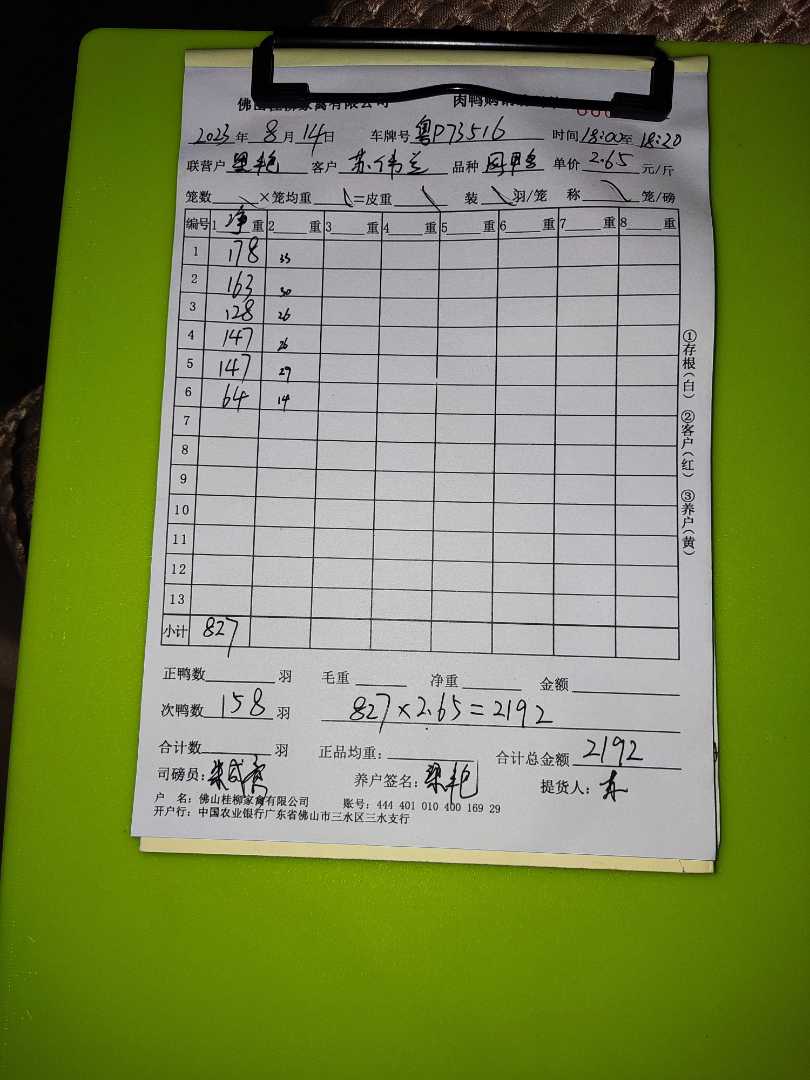 佛山桂柳家禽有限公司 肉鸭购销
2023 年 8 月 14 日 车牌号 粤P73516 时间 18:00 至 18:20
联营户 梁艳 客户 苏伟兰 品种 单价 2.65 元/斤
笼数 ×笼均重 =皮重 装 羽/笼 称 笼/磅
编号 1 净 重 2 重 3 重 4 重 5 重 6 重 7 重 8 重
1 178 33
2 163 30
3 128 26
4 147 26
5 147 29
6 64 14
7
8
9
10
11
12
13
小计 827
①存根(白) ②客户(红) ③养户(黄)
正鸭数 羽 毛重 净重 金额
次鸭数 158 羽 827×2.65=2192
合计数 羽 正品均重: 合计总金额 2192
司磅员: 养户签名: 梁艳 提货人:
户 名: 佛山桂柳家禽有限公司 账号: 444 401 010 400 169 29
开户行: 中国农业银行广东省佛山市三水区三水支行